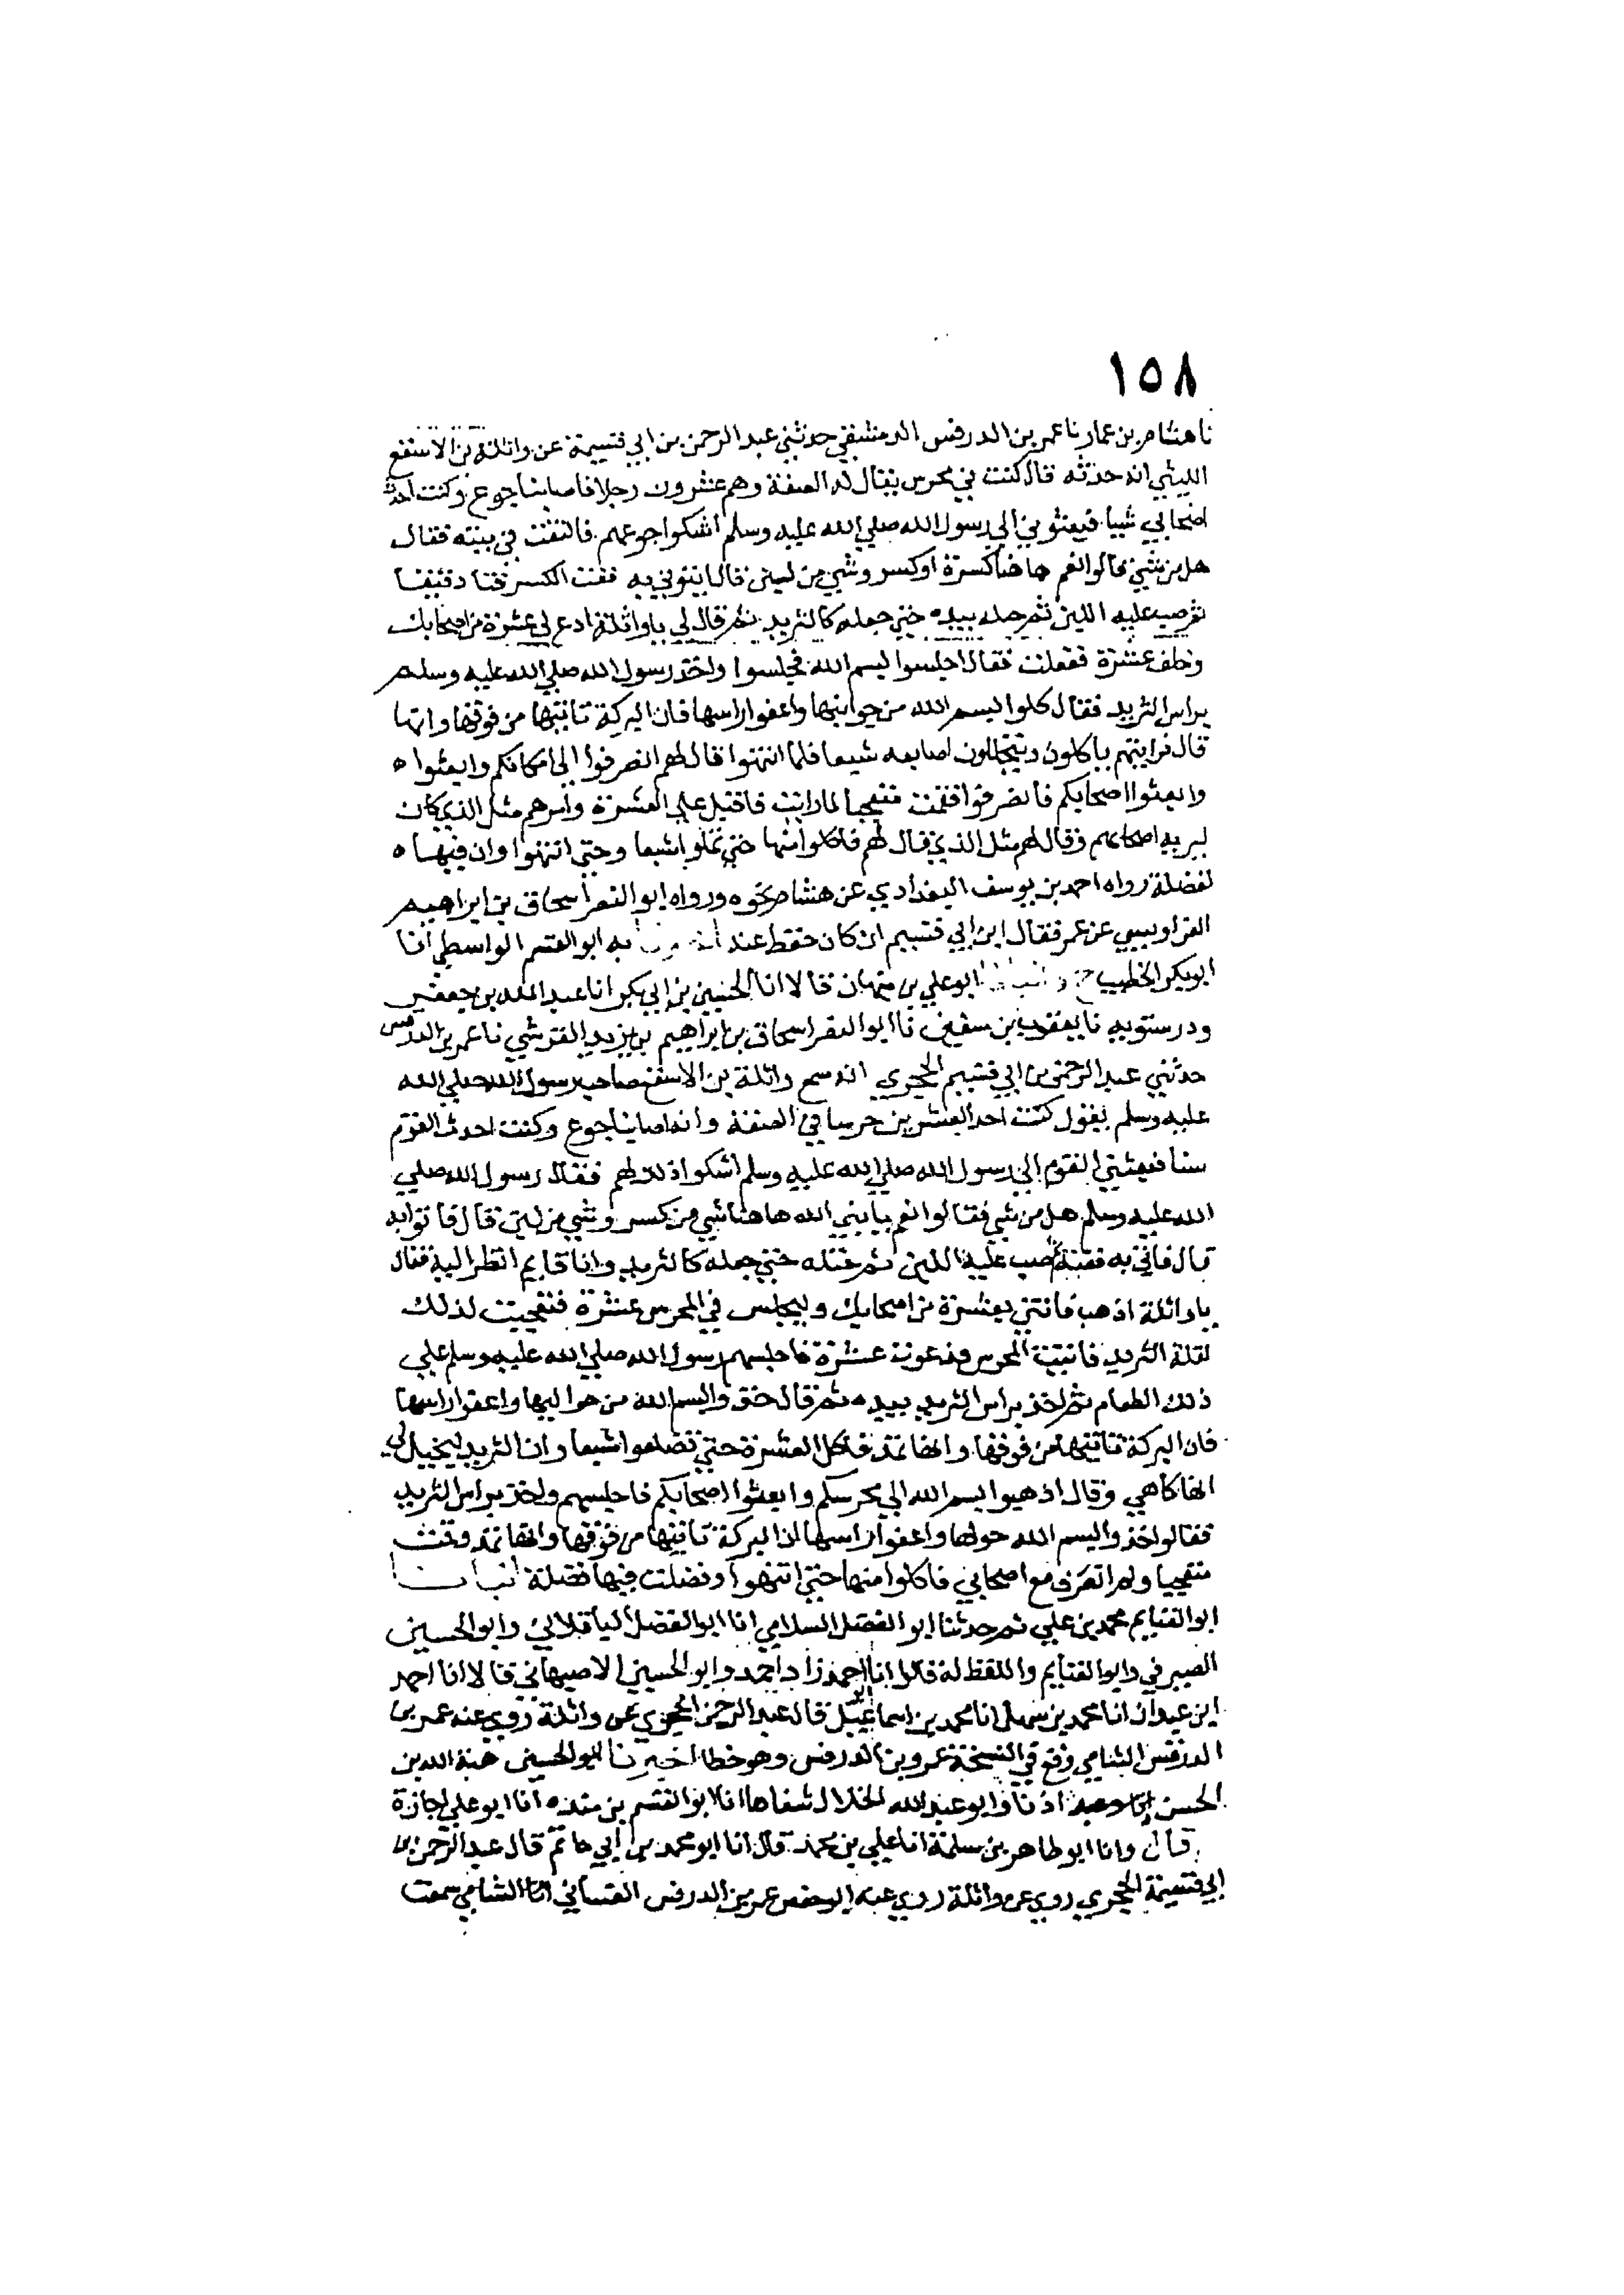 ١٥٨
نا هشام بن عمار نا عمر بن الدرفس الدمشقي حدثني عبد الرحمن بن ابي قسيمة عن واثلة بن الاسقع
الليثي انه حدثه قال كنت في محرس يقال له الصفة وهم عشرون رجلا فاصابنا جوع وكنت احدث
اصحابي سنا فبعثوني الي رسول الله صلي الله عليه وسلم اشكوا جوعهم فالتفت في بيته فقال
هل من شي قالوا نعم ها هنا كسرة او كسر وشي من لبن قال ايتوني به ففت الكسر فتا دقيقا
ثم صب عليه اللبن ثم جبله بيده حتي جعله كالثريد ثم قال لي يا واثلة ادع لي عشرة من اصحابك
وخلف عشرة ففعلت فقال اجلسوا بسم الله فجلسوا واخذ رسول الله صلي الله عليه وسلم
براس الثريد فقال كلوا بسم الله من جوانبها واعفوا راسها فان البركة تاتيها من فوقها وانها
قال فرايتهم ياكلون ويتخللون اصابعه شبعا فلما انتهوا قال لهم انصرفوا الي مكانكم وابعثوا ه
وابعثوا اصحابكم فانصرفوا فقمت متعجبا لما رايت فاقبل علي العشرة وامرهم مثل الذي كان
اصحابهم وقال لهم مثل الذي قال لهم فاكلوا منها حتي تملوا شبعا وحتي انتهوا وان فيها ه
لفضلة رواه احمد بن يوسف البغدادي عن هشام نحوه ورواه ابو النضر اسحاق بن ابراهيم
الفراديسي عن عمر فقال ابن ابي قسيم ان كان حفظ عند به ابو القسم الواسطي انا
ابو بكر الخطيب ح ابو علي بن نبهان قالا انا الحسين بن ابي بكر انا عبد الله بن جعفر
ودرستويه نا يعقوب بن سفين نا ابو النضر اسحاق بن ابراهيم بن يزيد القرشي نا عمر بن الدرفس
حدثني عبد الرحمن بن ابي قسيم الحجري انه سمع واثلة بن الاسقع صاحب رسول الله صلي الله
عليه وسلم يقول كنت احد العشرين حرسا في الصفة وانه اصابنا جوع وكنت احدث القوم
سنا فبعثني القوم الي رسول الله صلي الله عليه وسلم اشكوا ذلك لهم فقال رسول الله صلي
الله عليه وسلم هل من شي فقالوا نعم يا نبي الله هاهنا شي من كسر وشي من لبن قال فاتوا به
قال فاتي به ففته ثم صب عليه اللبن ثم فتله حتي جعله كالثريد وانا قايم انظر اليه فقال
يا واثلة اذهب فاتني بعشرة من اصحابك وليجلس في المحرس عشرة فتعجبت لذلك
لقلة الثريد فاتيت المحرس فدعوت عشرة فاجلسهم رسول الله صلي الله عليه وسلم علي
ذلك الطعام ثم اخذ براس الثريد بيده ثم قال خذوا بسم الله من حواليها واعفوا راسها
فان البركة تاتيها من فوقها وانها تمد فاكل العشرة حتي تضلعوا شبعا وان الثريد ليخيل لي
انها كاهي وقال اذهبوا بسم الله الي محرسكم وابعثوا اصحابكم فاجلسهم واخذ براس الثريد
فقالوا خذوا بسم الله حولها واعفوا راسها ان البركة تاتيها من فوقها وانها تمد وقمت
متعجبا ولم اتعرف مع اصحابي فاكلوا منها حتي انتهوا وفضلت فيها فضلة
ابو الغنايم محمد بن علي ثم حدثنا ابو الفضل السلامي انا ابو الفضل الباقلاني وابو الحسين
الصيرفي وابو الغنايم واللفظ له قالوا انا احمد زاد احمد وابو الحسين الاصبهاني قالا انا احمد
ابن عبدان انا محمد بن سهل انا محمد بن اسماعيل قال عبد الرحمن الحجري عن واثلة روي عنه عمر بن
الدرفس الشامي وقع في النسخة عمرو بن الدرفس وهو خطا اخبرنا ابو الحسين هبة الله بن
الحسن اذنا وابو عبد الله الخلال شفاها انا ابو القسم بن منده انا ابو علي اجازة
قال وانا ابو طاهر بن سلمة انا علي بن محمد قال انا ابو محمد بن ابي حاتم قال عبد الرحمن بن
ابي قسيمة الحجري روي عن واثلة روي عنه ابو حفص عمر بن الدرفس الغساني الشامي سمعت